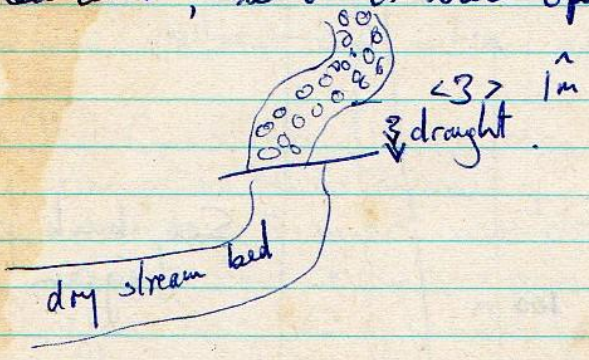 <3> 1m
draught.
dry stream bed